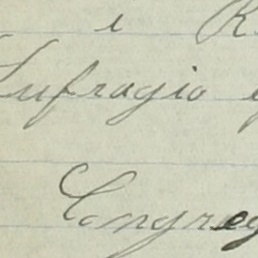 i R
Sufragio e
Congreg